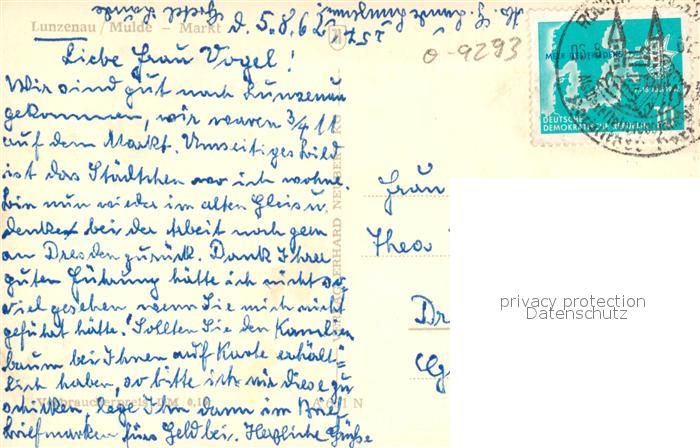 Lunzenau / Mulde – Markt
d. 5.8.62
Liebe Frau Vogel!
Wir sind gut nach Lunzenau
gekommen, wir waren 3/4 11
auf dem Markt. Umseitiges Bild
ist das Städtchen wo ich wohne.
Bin nun wieder im alten Gleis u.
denke bei der Arbeit noch gern
an Dresden zurück. Dank Ihrer
guten Führung hätte ich nicht so
viel gesehen wenn Sie mich nicht
geführt hätte. Sollten Sie den Kamelien
baum bei Ihnen auf Karte erhält=
lich haben, so bitte ich mir diese zu
schicken, lege Ihn dann im Brief
Briefmarken fürs Geld bei. Herzliche Grüße
Verbraucherpreis DM 0.10
0-9293
DEUTSCHE
DEMOKRATISCHE REPUBLIK
10
Frau
Theo
Dr
privacy protection
Datenschutz